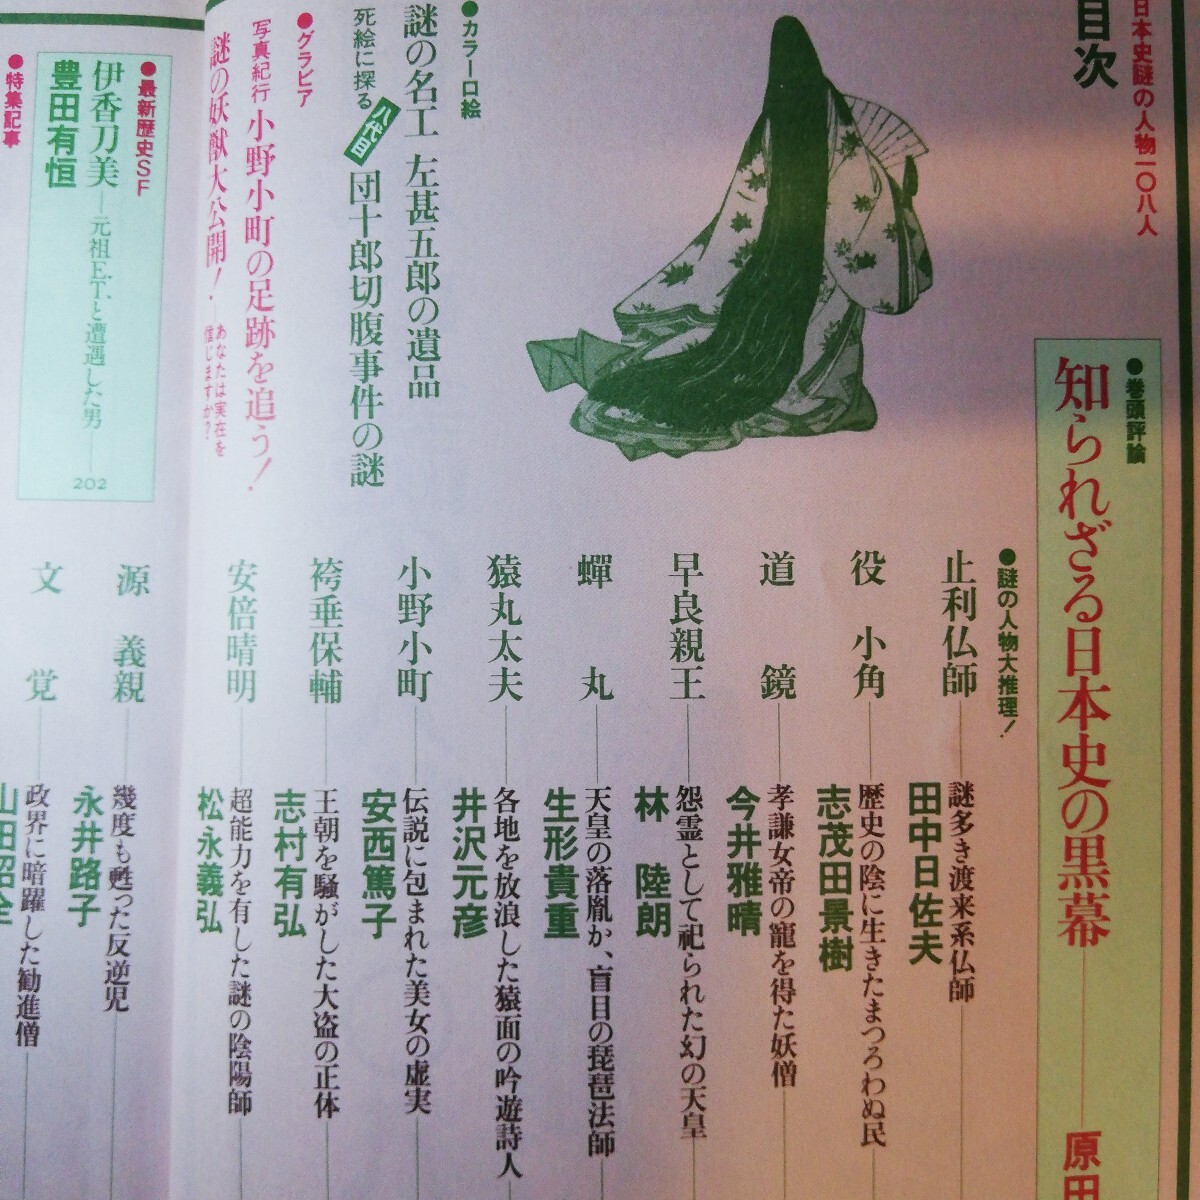 日本史謎の人物一〇八人
目次
●巻頭評論
知られざる日本史の黒幕
原田
●カラー口絵
謎の名工 左甚五郎の遺品
死絵に探る 八代目 団十郎切腹事件の謎
●グラビア
写真紀行 小野小町の足跡を追う!
謎の妖獣大公開! あなたは実在を信じますか?
●謎の人物大推理!
止利仏師
謎多き渡来系仏師
田中日佐夫
役 小角
歴史の陰に生きたまつろわぬ民
志茂田景樹
道 鏡
孝謙女帝の寵を得た妖僧
今井雅晴
早良親王
怨霊として祀られた幻の天皇
林 陸朗
蟬 丸
天皇の落胤か、盲目の琵琶法師
生形貴重
猿丸太夫
各地を放浪した猿面の吟遊詩人
井沢元彦
小野小町
伝説に包まれた美女の虚実
安西篤子
袴垂保輔
王朝を騒がした大盗の正体
志村有弘
安倍晴明
超能力を有した謎の陰陽師
松永義弘
●最新歴史SF
伊香刀美―元祖E.T.と遭遇した男―
豊田有恒
202
●特集記事
源 義親
幾度も甦った反逆児
永井路子
文 覚
政界に暗躍した勧進僧